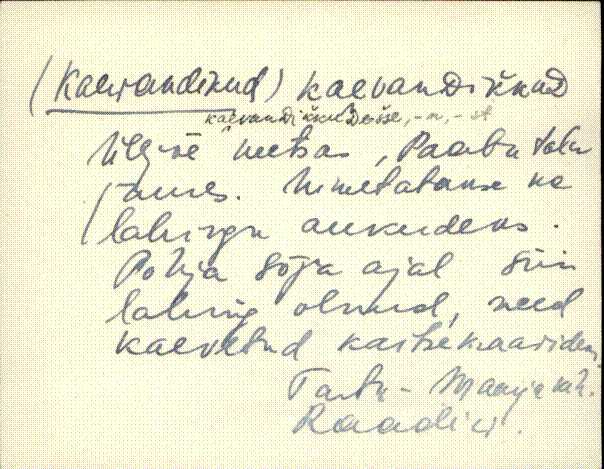 (Kaevandikud) kaevanDikkuD
kaevanDikkuDesse, -n, -st
Ülejõe metsas, Paabu talu
juures. Nimetatakse ka
lahingu aukudens.
Põhja sõja ajal siin
lahing olnud, need
kaevetud kaitsekraavidens.
Tartu-Maarja khk.
Raadi v.